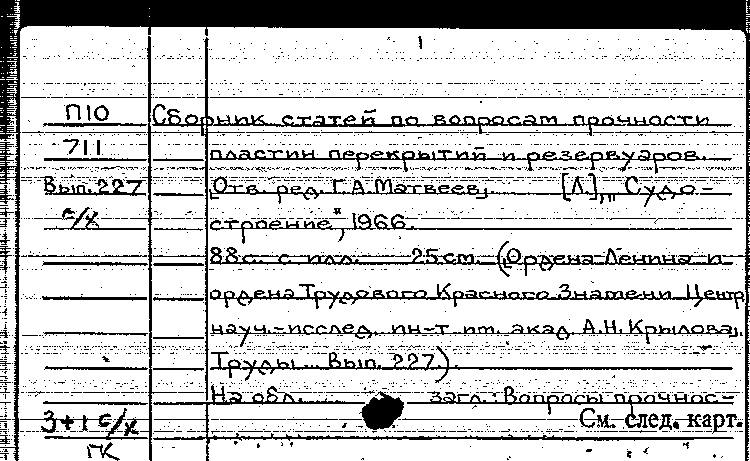 1
П10 Сборник статей по вопросам прочности
711 пластин перекрытий и резервуаров.
Вып. 227 [Отв. ред. Г.А. Матвеев]. [Л.], „Судо-
с/х строение", 1966.
88с. с илл. 25 см. (Ордена Ленина и
ордена Трудового Красного Знамени Центр.
науч.-исслед. ин-т им. акад. А.Н. Крылова].
Труды... Вып. 227).
На обл. загл.: Вопросы прочнос-
3+1 с/х См. след. карт.
ГК